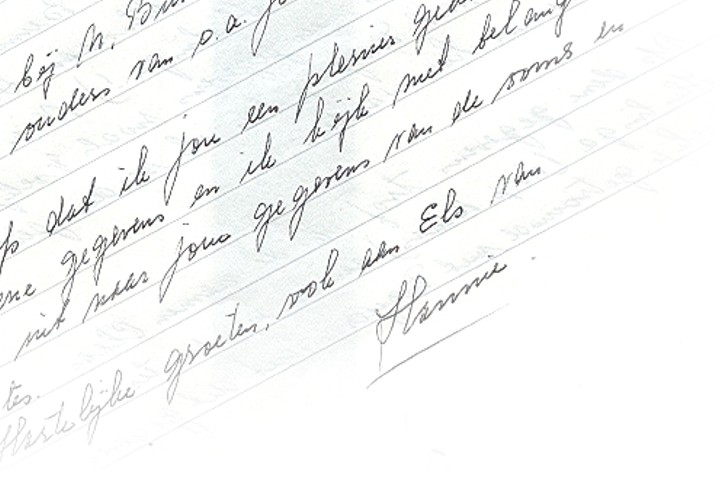 bij N. Bu
ouders van o.a. j
dat ik jou een plezier
gegevens en ik kijk met belang
uit naar jouw gegevens van de soms en
tes.
Hartelijke groeten, ook aan Els van
Hannie.